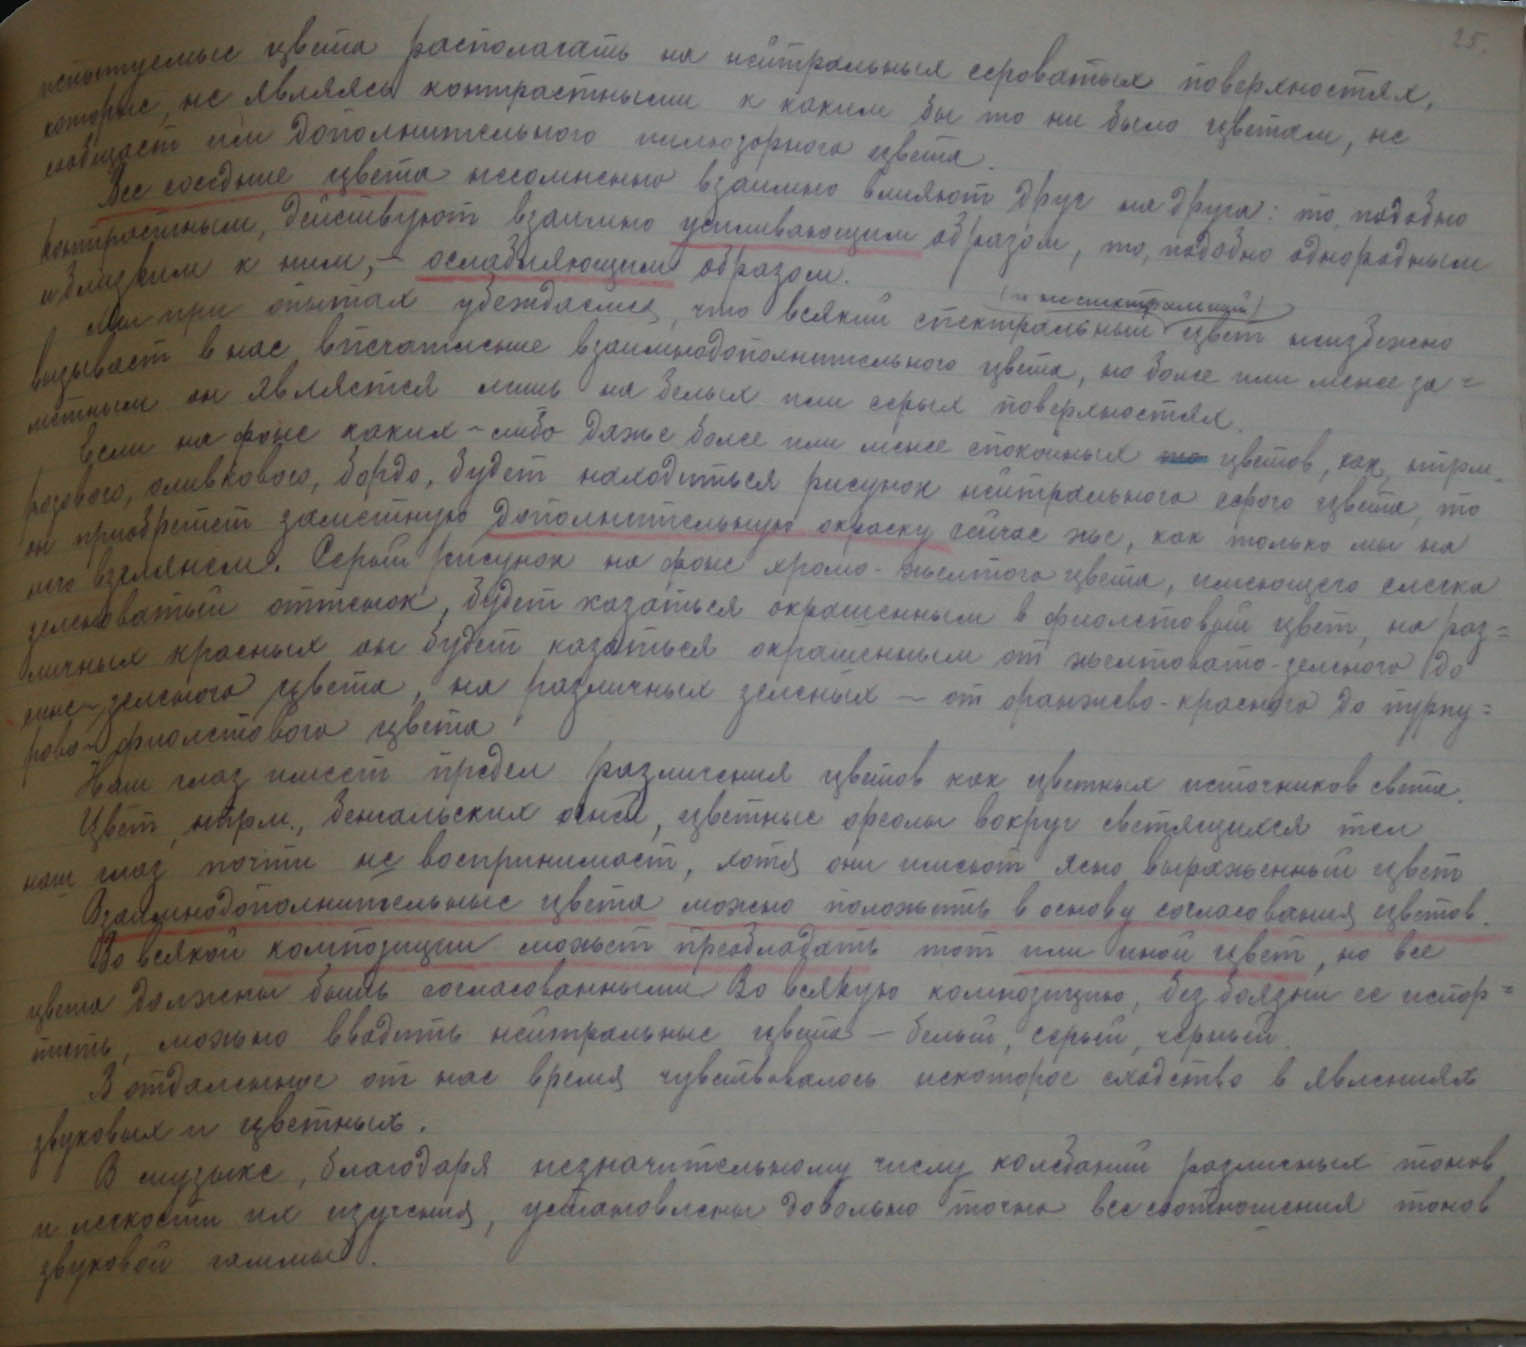 25.
испытуемые цвета располагать на нейтральных сероватых поверхностях,
которые, не являясь контрастными к каким бы то ни было цветам, не
сообщают им дополнительного иллюзорного цвета.
Все соседние цвета несомненно взаимно влияют друг на друга: то, подобно
контрастным, действуют взаимно усиливающим образом, то, подобно однородным
и близким к ним, – ослабляющим образом.
(и неспектральный)
Мы при опытах убеждаемся, что всякий спектральный цвет неизбежно
вызывает в нас впечатление взаимнодополнительного цвета, но более или менее за=
метным он является лишь на белых или серых поверхностях.
Если на фоне каких-либо даже более или менее спокойных цветов, как, нпрм.,
розового, оливкового, бордо, будет находиться рисунок нейтрального серого цвета, то
он приобретет заметную дополнительную окраску сейчас же, как только мы на
него взглянем. Серый рисунок на фоне хромо-желтого цвета, имеющего слегка
зеленоватый оттенок, будет казаться окрашенным в фиолетовый цвет, на раз=
личных красных он будет казаться окрашенным от желтовато-зеленого до
сине-зеленого цвета, на различных зеленых – от оранжево-красного до пурпу=
рово-фиолетового цвета
Наш глаз имеет предел различения цветов как цветных источников света.
Цвет, нпрм., бенгальских огней, цветные ореолы вокруг светящихся тел
наш глаз почти не воспринимает, хотя они имеют ясно выраженный цвет
Взаимнодополнительные цвета можно положить в основу согласования цветов.
Во всякой композиции может преобладать тот или иной цвет, но все
цвета должны быть согласованными. Во всякую композицию, без боязни ее испор=
тить, можно вводить нейтральные цвета – белый, серый, черный.
В отдаленное от нас время чувствовалось некоторое сходство в явлениях
звуковых и цветных.
В музыке, благодаря незначительному числу колебаний различных тонов
и легкости их изучения, установлены довольно точно все соотношения тонов
звуковой гаммы.